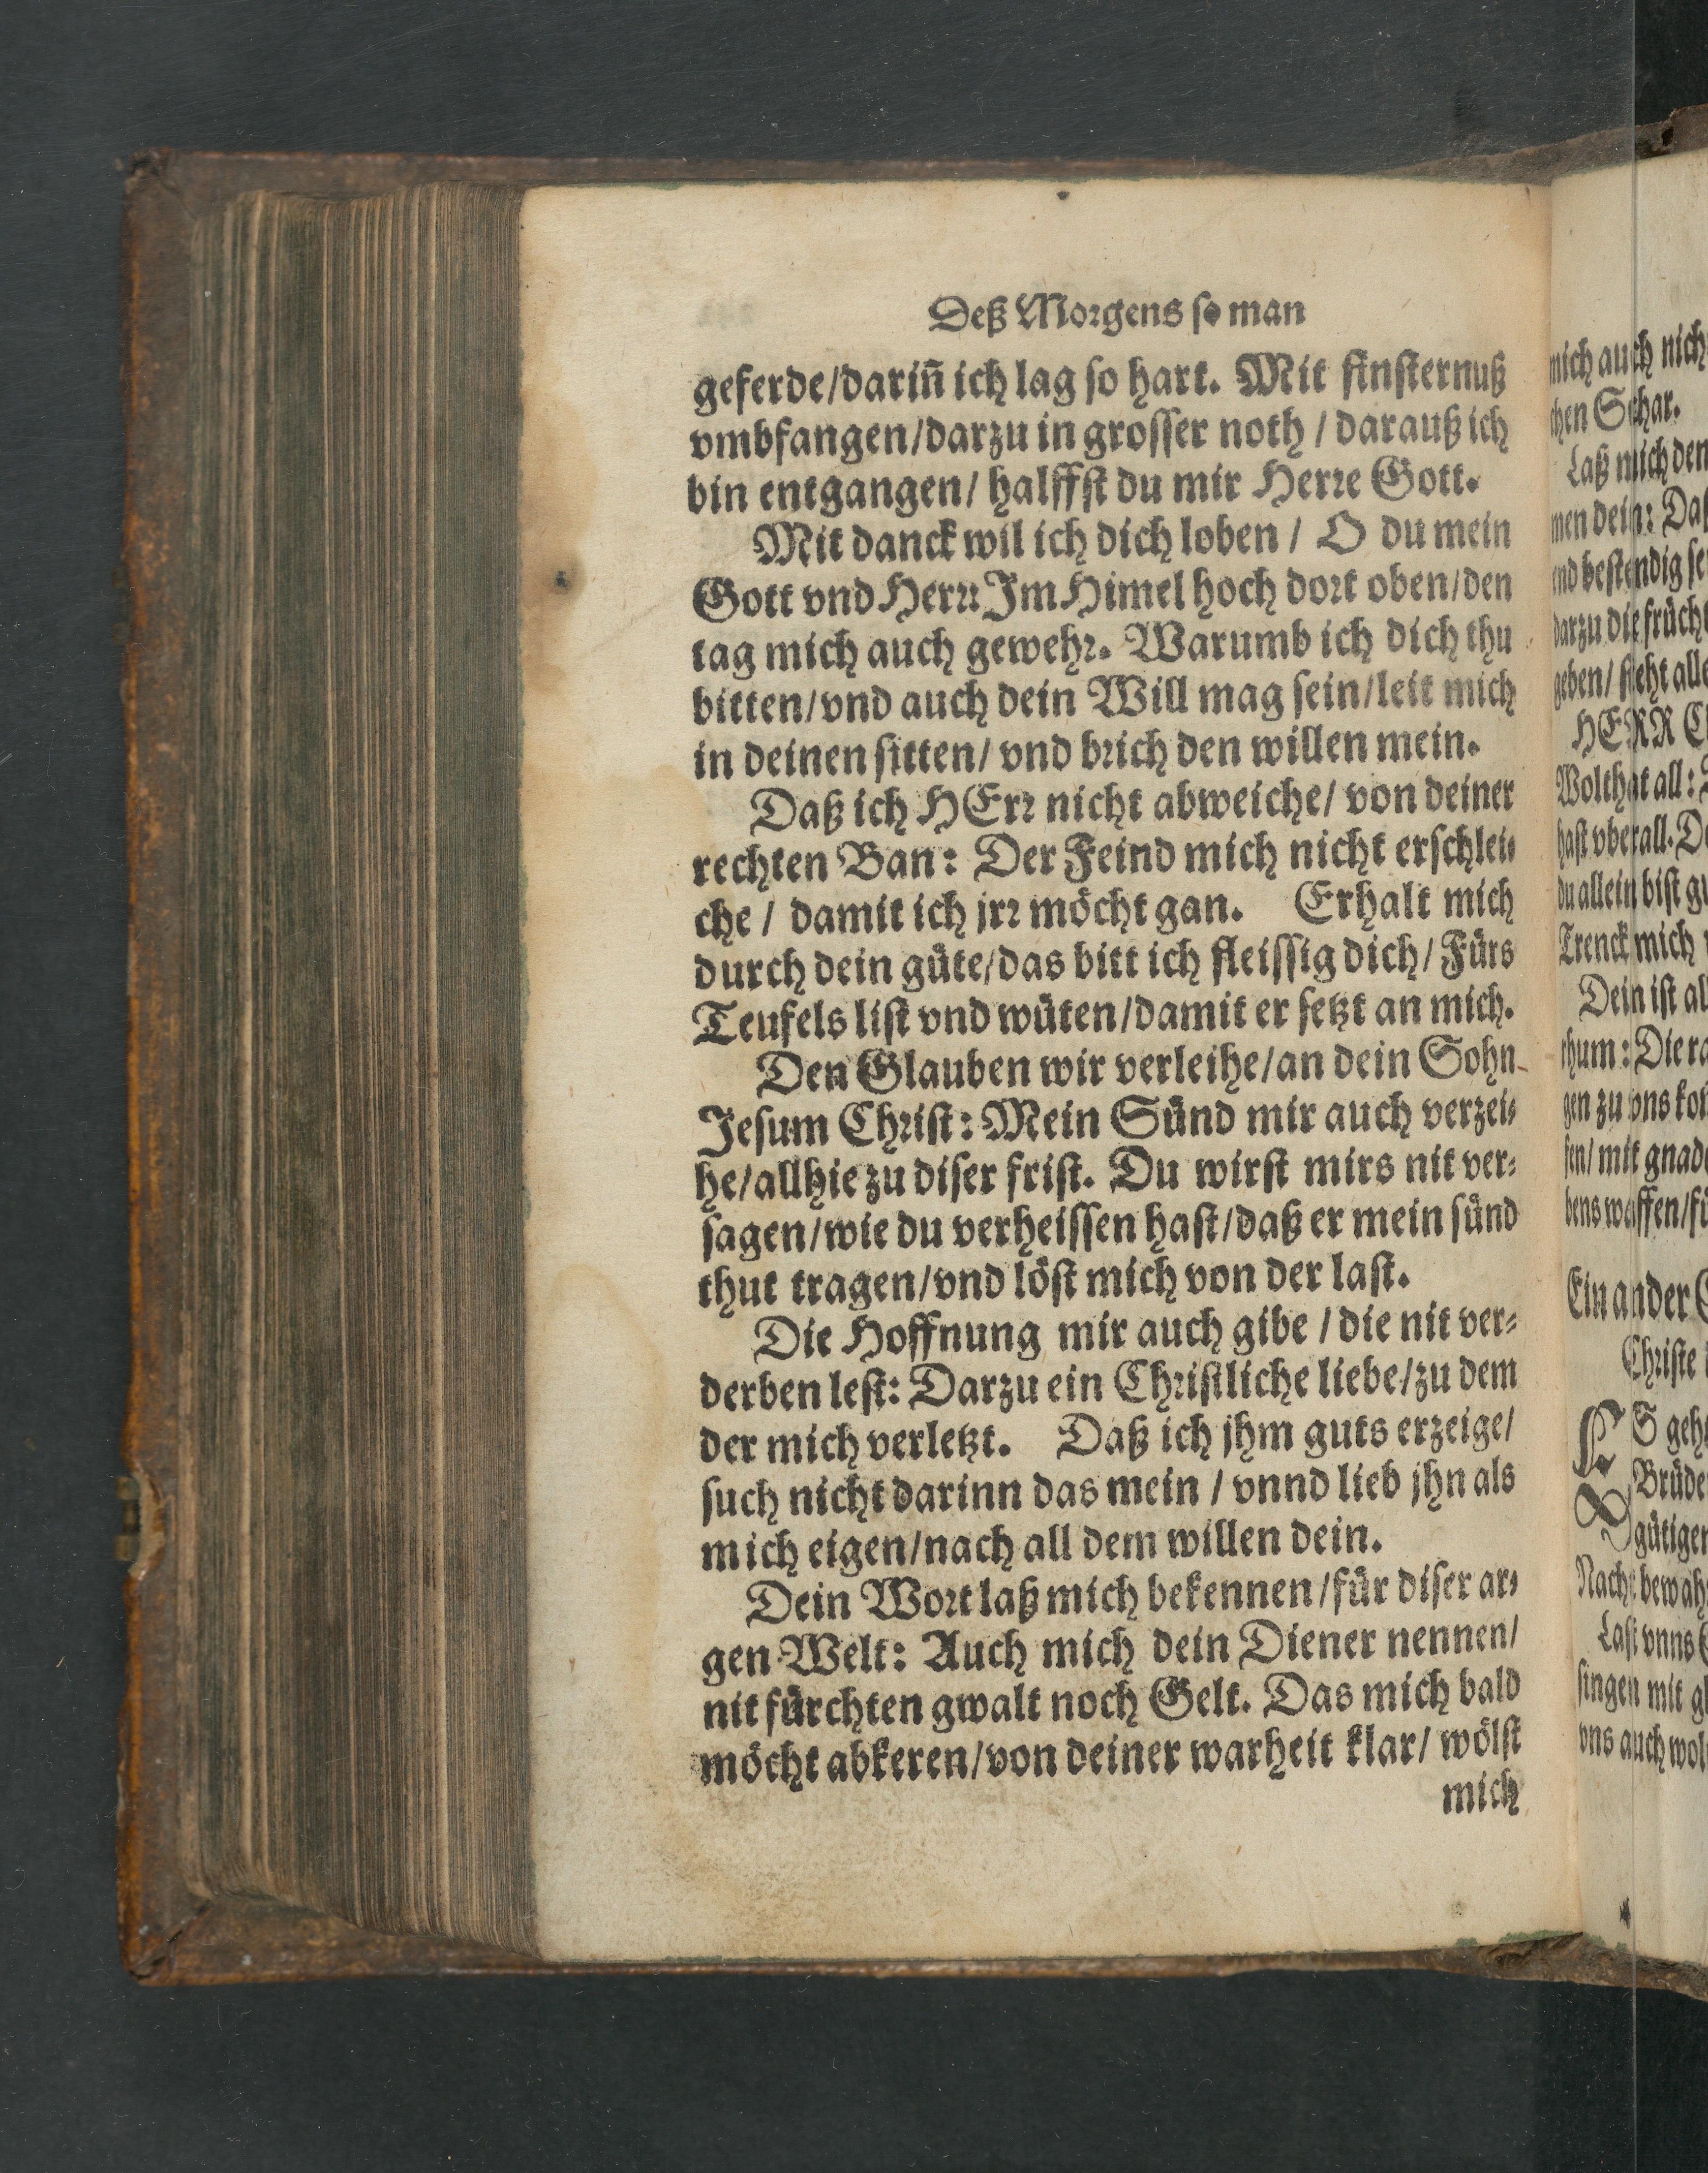 Deß Morgens so man
geferde/dariñ ich lag so hart. Mit finsternuß
vmbfangen/darzu in grosser noth / darauß ich
bin entgangen/ halffst du mir Herre Gott.
Mit danck wil ich dich loben / O du mein
Gott vnd Herr: Im Himel hoch dort oben/den
tag mich auch gewehr. Warumb ich dich thu
bitten/vnd auch dein Will mag sein/leit mich
in deinen sitten/ vnd brich den willen mein.
Daß ich HErr nicht abweiche/ von deiner
rechten Ban: Der Feind mich nicht erschlei-
che / damit ich jrr möcht gan. Erhalt mich
durch dein güte/das bitt ich fleissig dich/ Fürs
Teufels list vnd wüten/damit er setzt an mich.
Den Glauben wir verleihe/an dein Sohn
Jesum Christ: Mein Sünd mir auch verzei-
he/allhie zu diser frist. Du wirst mirs nit ver-
sagen/wie du verheissen hast/daß er mein sünd
thut tragen/vnd löst mich von der last.
Die Hoffnung mir auch gibe / die nit ver-
derben lest: Darzu ein Christliche liebe/zu dem
der mich verletzt. Daß ich jhm guts erzeige/
such nicht darinn das mein / vnnd lieb jhn als
mich eigen/nach all dem willen dein.
Dein Wort laß mich bekennen/für diser ar-
gen Welt: Auch mich dein Diener nennen/
nit fürchten gwalt noch Gelt. Das mich bald
möcht abkeren/von deiner warheit klar/ wölst
mich
mich auch
Schar.
Laß mich
dein:
bestendig
darzu die
geben/
HERR
Wolthat all:
hast vberall.
du allein bist
Trenck mich
Dein ist
thum: Die
gen zu vns
fen/ mit
bens waffen/
Ein ander
Christe
ES
gütigen
Nacht
Last vnns
singen mit
vns auch